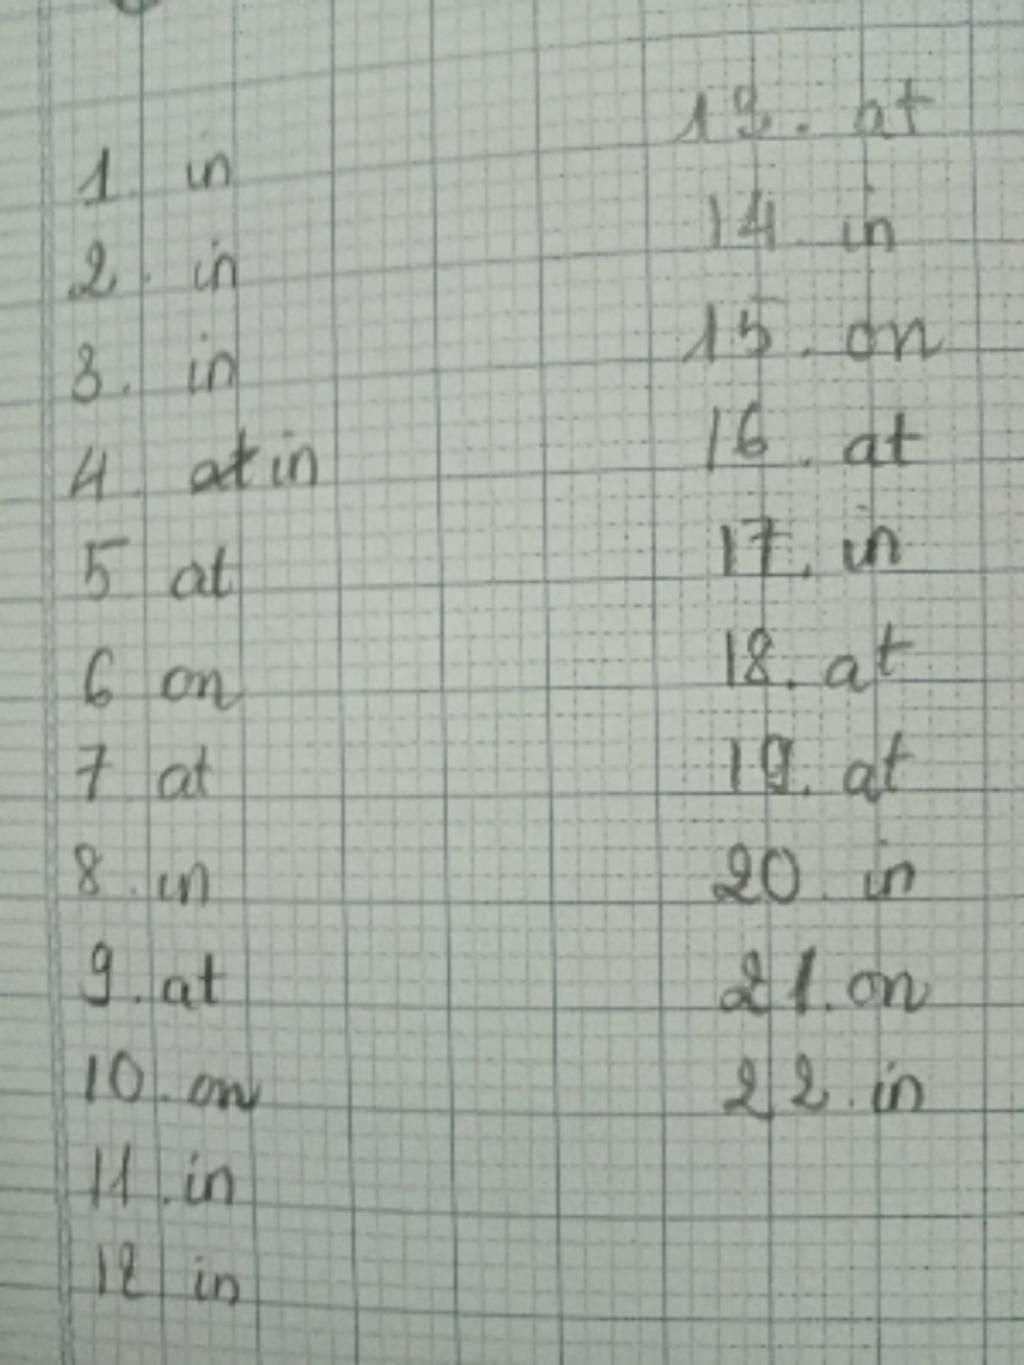 1 in
2. in
3. in
4 at in
5 at
6 on
7 at
8. in
9. at
10. on
11. in
12 in
13. at
14 in
15. on
16. at
17. in
18. at
19. at
20 in
21. on
22. in